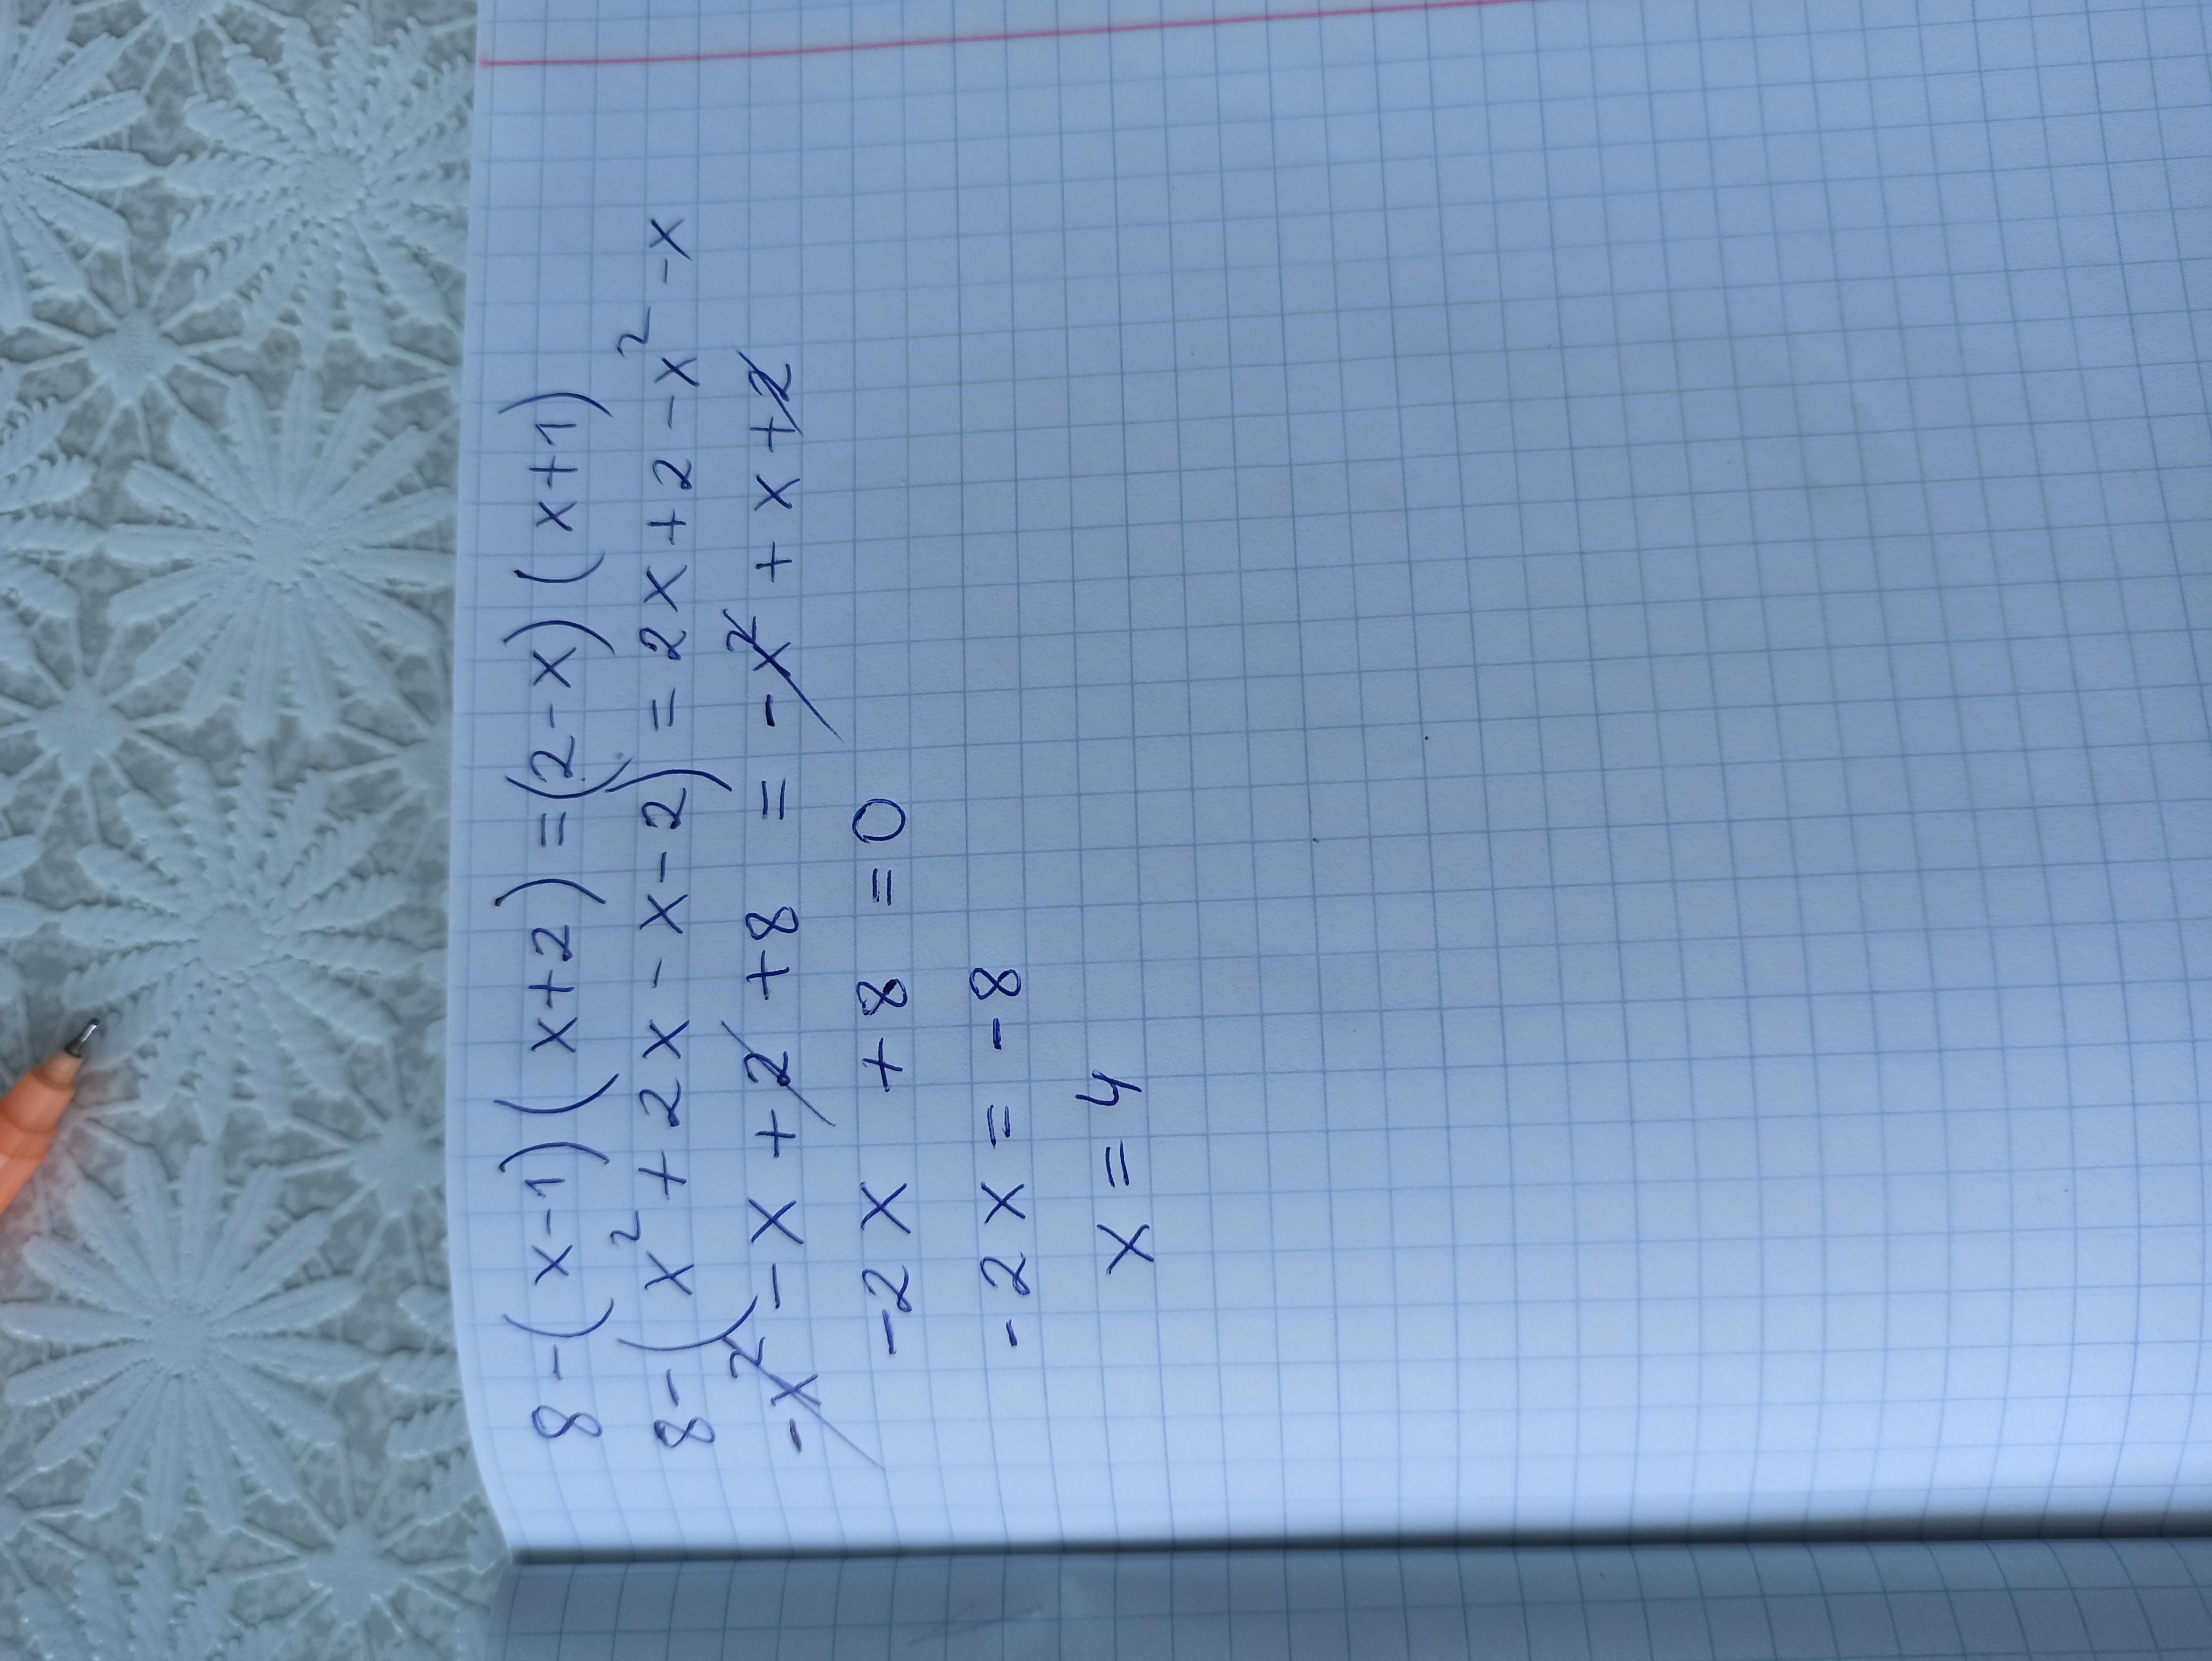 8-(x-1)(x+2)=(2-x)(x+1)
8-(x²+2x-x-2)=2x+2-x²-x
-x²-x+2+8=-x²+x+2
-2x+8=0
-2x=-8
x=4